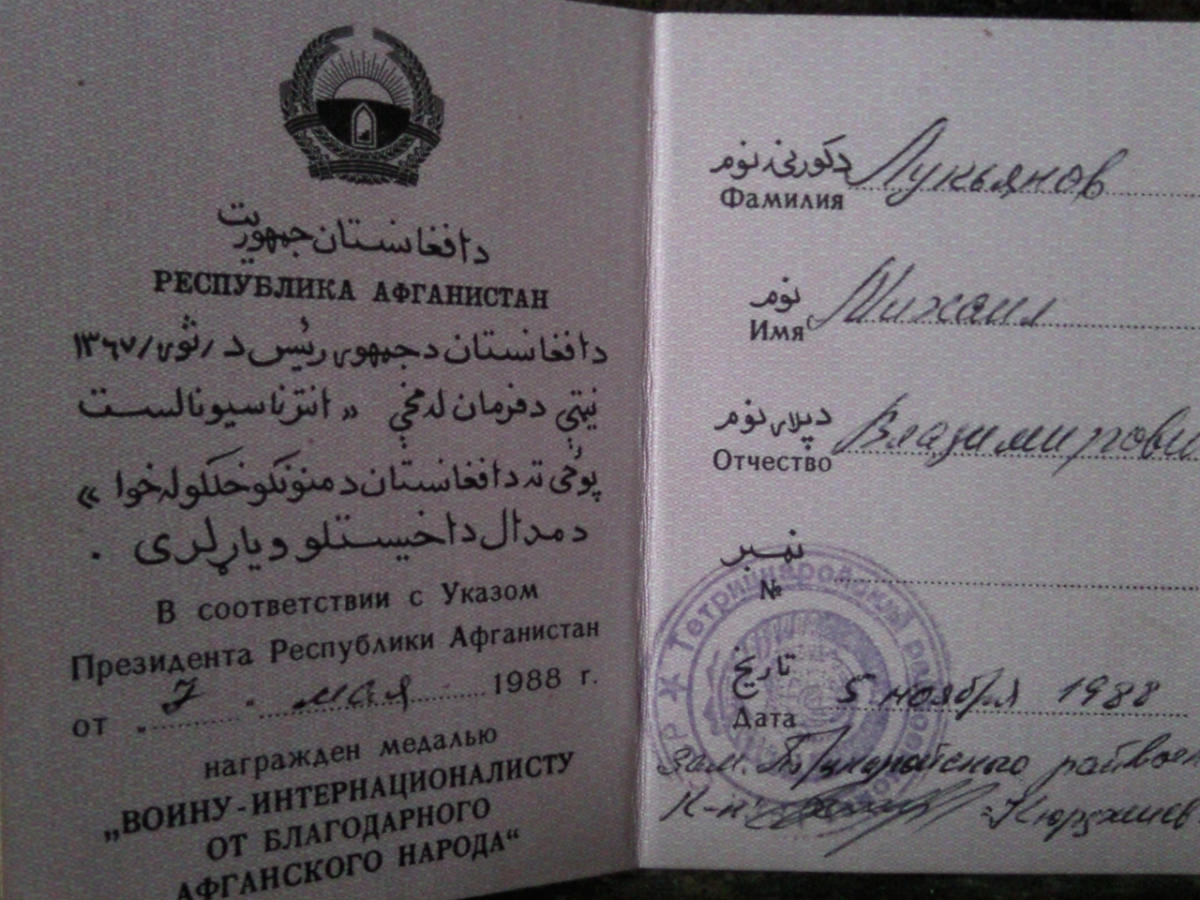 دافغانستان جمهوریت
РЕСПУБЛИКА АФГАНИСТАН
دافغانستان دجمهوری رئیس د / ثور / ۱۳۶۷
نیټې دفرمان له مخې «انترناسیونالست
پوځی ته دافغانستان دمنونکو خلکو له خوا»
دمدال داخیستلو ویاړ لری .
В соответствии с Указом
Президента Республики Афганистан
от „7" мая 1988 г.
награжден медалью
„ВОИНУ-ИНТЕРНАЦИОНАЛИСТУ
ОТ БЛАГОДАРНОГО
АФГАНСКОГО НАРОДА“
دکورنۍ نوم
Фамилия Лукьянов
نوم
Имя Михаил
دپلار نوم
Отчество Владимирови
نمبر
№
تاریخ
Дата 5 ноября 1988
Зам. райвоен
К-н